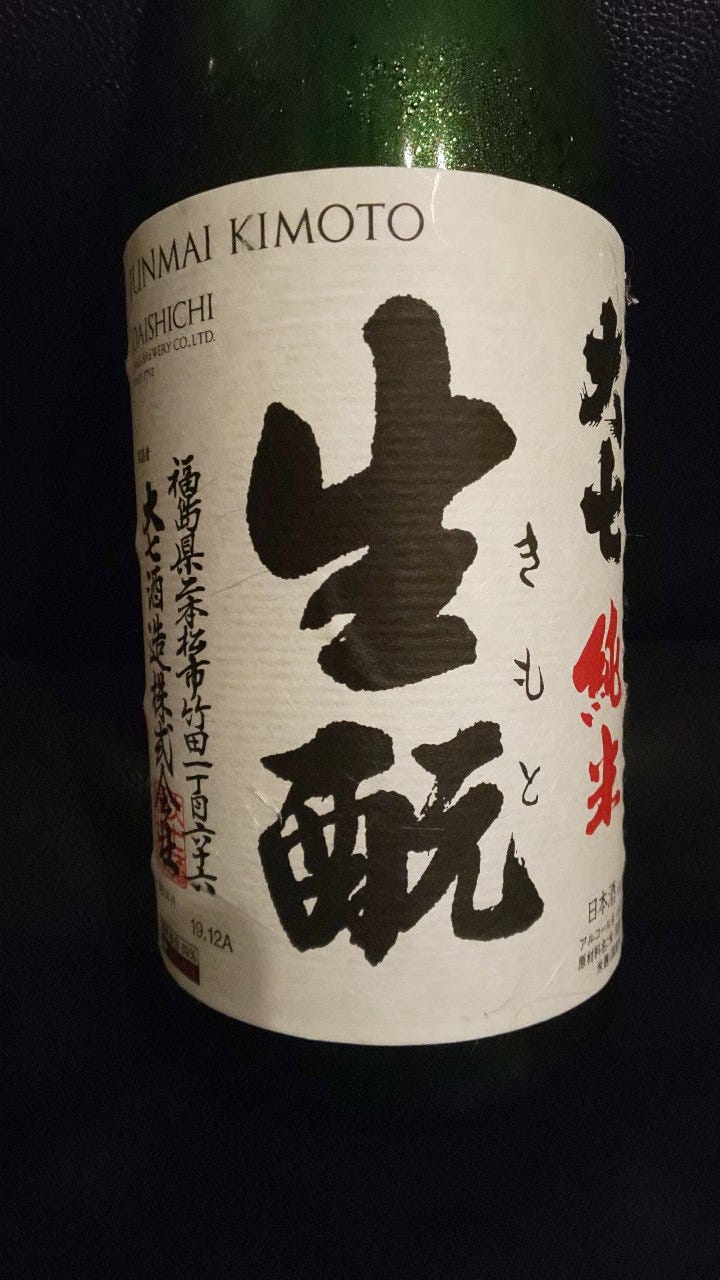 JUNMAI KIMOTO
DAISHICHI
BREWERY CO.,LTD.
大七
純米
きもと
生酛
福島県二本松市竹田一丁目六十六
大七酒造株式会社
19.12A
日本酒
アルコール
原材料名
米麹